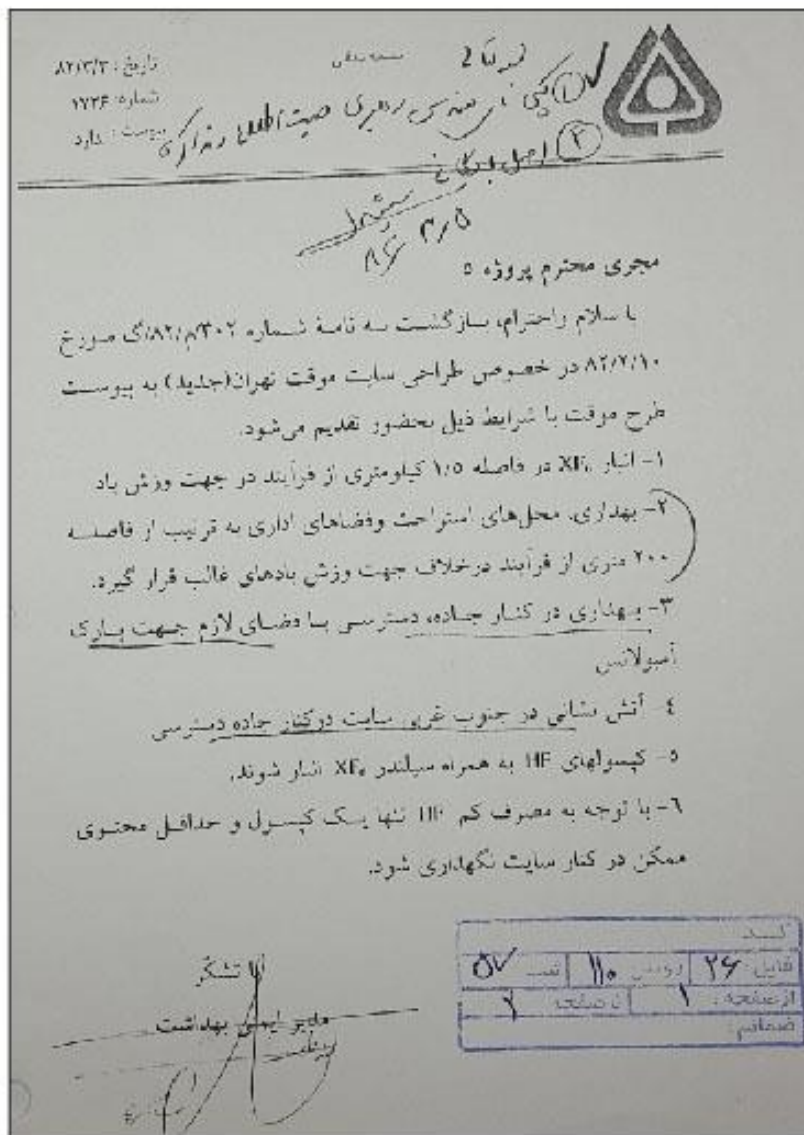 تاریخ: ۸۲/۳/۳
شماره: ۱۷۳۶
پیوست: دارد
① کپی
② اصل بایگانی
مجری محترم پروژه ۵
با سلام واحترام، بازگشت به نامهٔ شماره ۳۰۲/م/۸۲/گ مورخ
۸۲/۲/۱۰ در خصوص طراحی سایت موقت تهران(جدید) به پیوست
طرح موقت با شرایط ذیل بحضور تقدیم می‌شود.
۱- انبار XF₆ در فاصله ۱/۵ کیلومتری از فرآیند در جهت وزش باد
۲- بهداری، محل‌های استراحت وفضاهای اداری به ترتیب از فاصله
۲۰۰ متری از فرآیند درخلاف جهت وزش بادهای غالب قرار گیرد.
۳- بهداری در کنار جاده، دسترسی با فضای لازم جهت پارک
آمبولانس
۴- آتش نشانی در جنوب غربی سایت درکنار جاده دسترسی
۵- کپسولهای HF به همراه سیلندر XF₆ انبار شوند.
۶- با توجه به مصرف کم HF تنها یک کپسول و حداقل محتوی
ممکن در کنار سایت نگهداری شود.
با تشکر
مدیر ایمنی بهداشت
کد
فایل ۲۶ ۱۱۰ ۵۷
از صفحه: ۱ تا صفحه ۲
ضمائم: